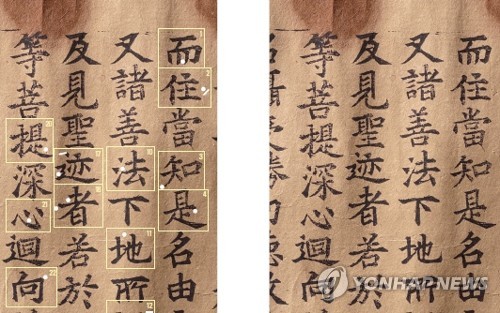 而住當知是名由
又諸善法下地所
及見聖迹者若於
等菩提深心迴向
1
2
3
4
10
11
12
17
18
20
21
22
而住當知是名由
又諸善法下地所
及見聖迹者若於
等菩提深心迴向
YONHAPNEWS